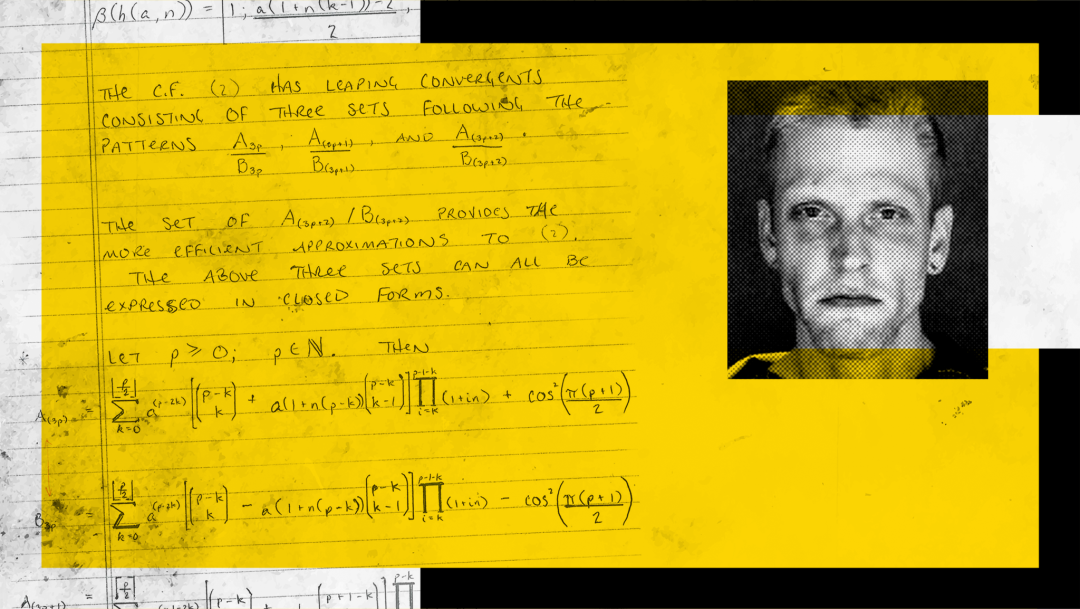 β(h(a,n)) = [1; a(1+n(k-1))-2,
2
THE C.F. (2) HAS LEAPING CONVERGENTS
CONSISTING OF THREE SETS FOLLOWING THE
PATTERNS A₃ₚ/B₃ₚ, A₍₃ₚ₊₁₎/B₍₃ₚ₊₁₎, AND A₍₃ₚ₊₂₎/B₍₃ₚ₊₂₎.
THE SET OF A₍₃ₚ₊₂₎/B₍₃ₚ₊₂₎ PROVIDES THE
MORE EFFICIENT APPROXIMATIONS TO (2).
THE ABOVE THREE SETS CAN ALL BE
EXPRESSED IN CLOSED FORMS.
LET p ≥ 0; p ∈ ℕ. THEN
A₍₃ₚ₎ = ∑_{k=0}^{⌊p/2⌋} a^{(p-2k)} [(p-k choose k) + a(1+n(p-k))(p-k choose k-1)] ∏_{i=k}^{p-1-k} (1+in) + cos²(π(p+1)/2)
B₃ₚ = ∑_{k=0}^{⌊p/2⌋} a^{(p-2k)} [(p-k choose k) - a(1+n(p-k))(p-k choose k-1)] ∏_{i=k}^{p-1-k} (1+in) - cos²(π(p+1)/2)